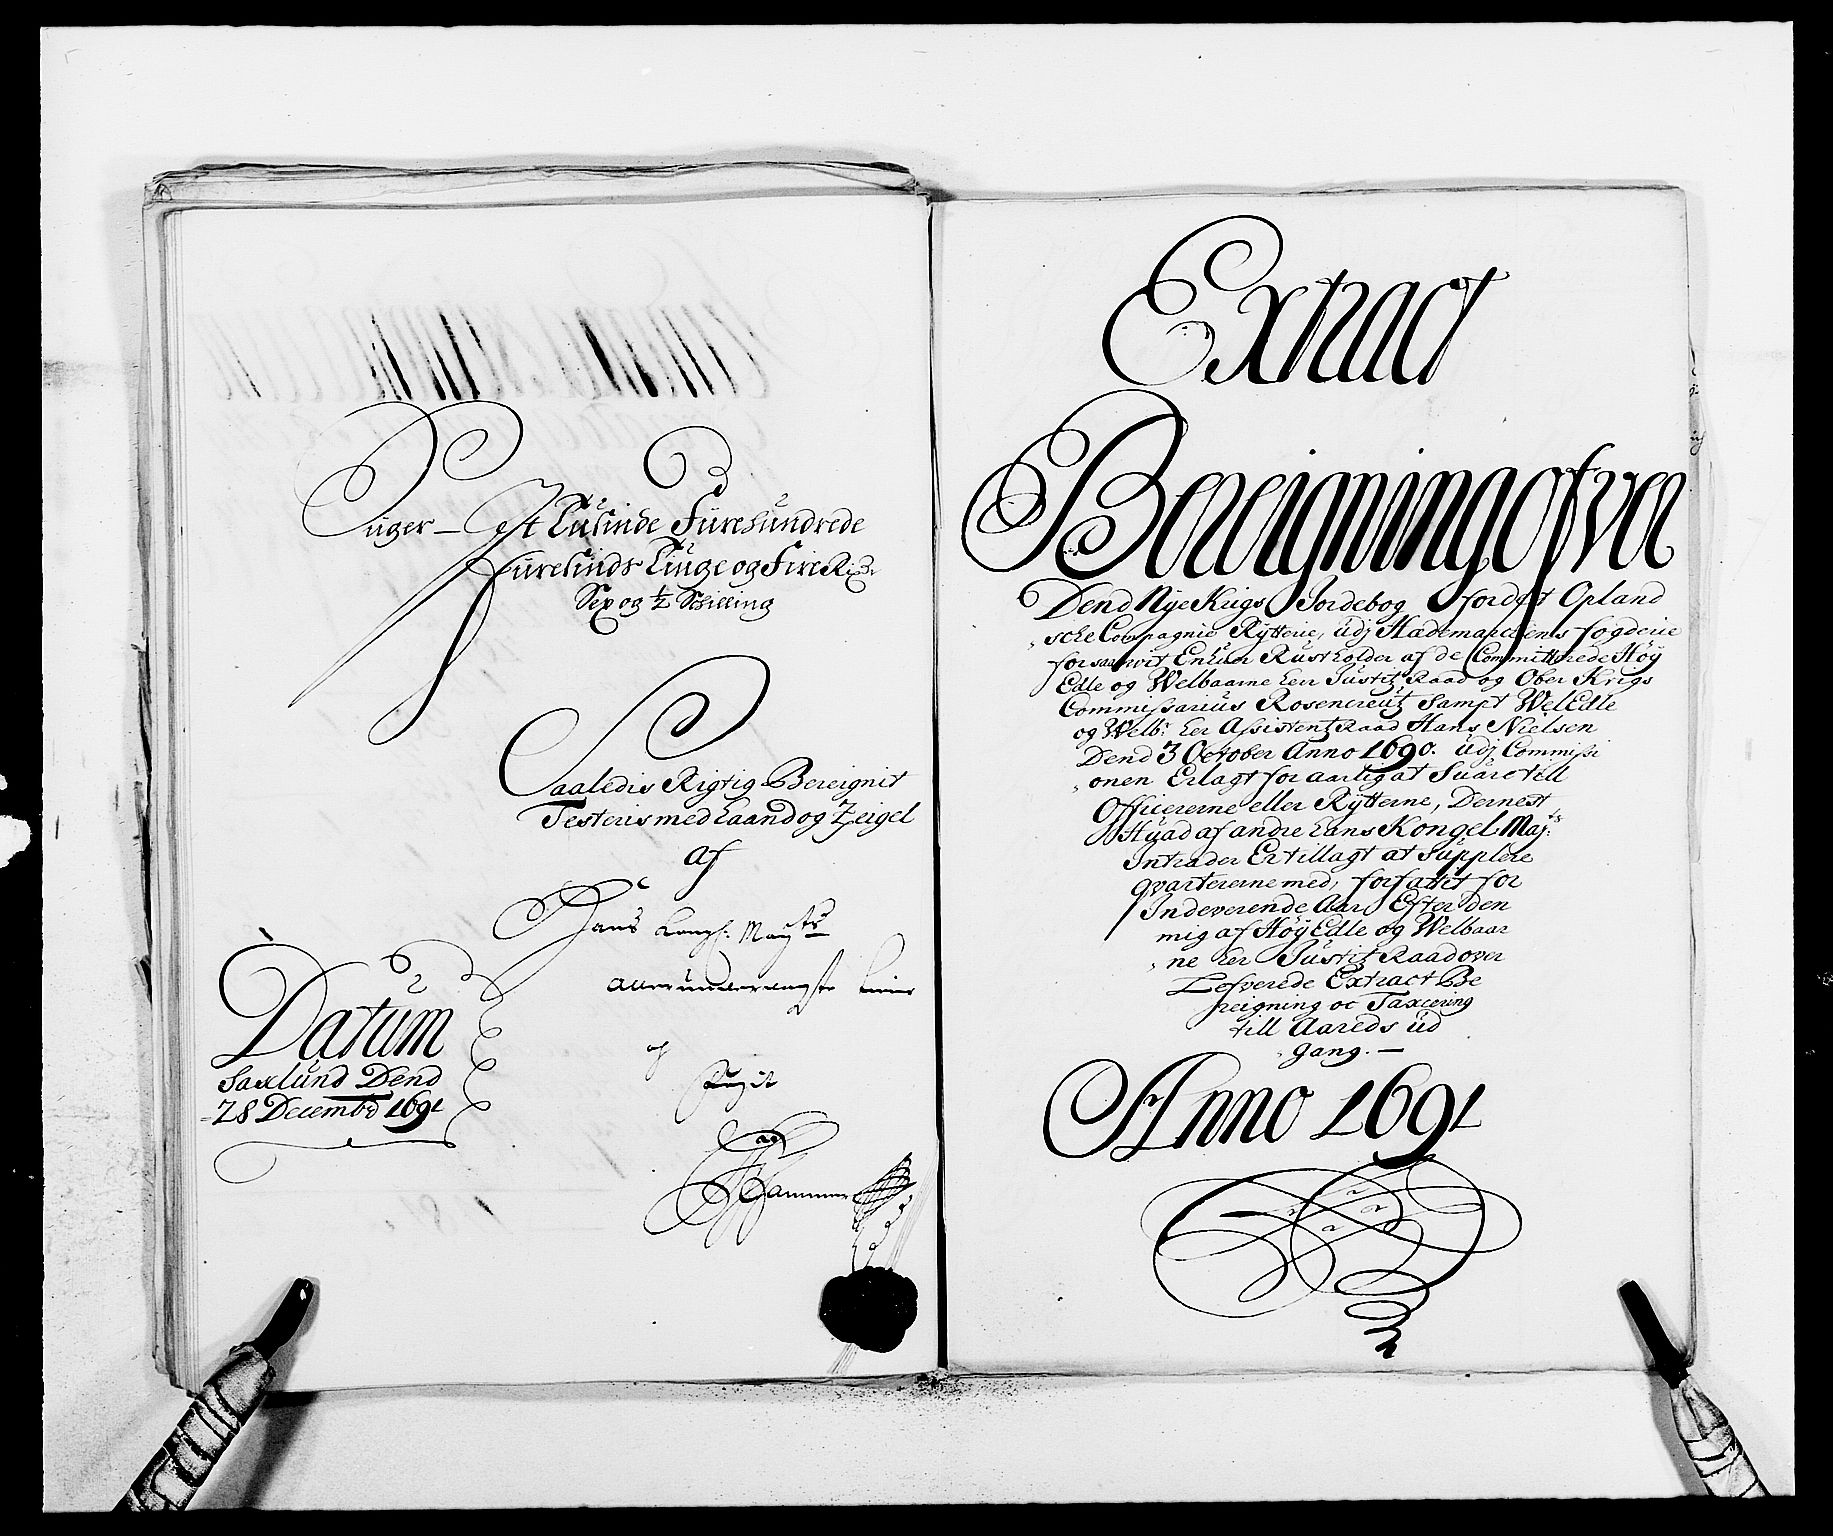 Siger – Et Tusinde Fürehundrede
Füresinds Tiuge og Fire RixDr
Sex og ½ Schilling
Saaledis Rigtig Bereignit
Testeris med haand og Zeigel
af
Hans Kongl: Mayts
allerunderdanigste tiener
og
Fugit
Hammer
Datum
Saxlund Dend
28 Decembr 1691
Extract
Bereigning ofver
Dend Nye Krigs Jordebog for det Opland
sche Compagnie Rÿtterie, udj Hædemarckens fogderie
for saawit Enhuer Rustholder af de Committerede Høÿ
Edle og Welbaarne herr Justitz Raad og Ober Krigs
Commissarius Rosencreutz Sampt WelEdle
og Welb: her Assistentz Raad Hans Nielsen
Dend 3 October Anno 1690. udj Commissi
onen Erlagt for aarlig at Suare till
Officererne eller Rÿtterne, Dernest
Huad af andre hans Kongel Maj:ts
Intrader Er tillagt at Supplere
qvartererne med, forfattet for
Indeverende Aar Efter den
mig af Høÿ Edle og Welbaar
ne her Justitz Raad over
Lefverede Extract Be
reigning oc Taxcering
till Aareds ud
gang. —
Anno 1691